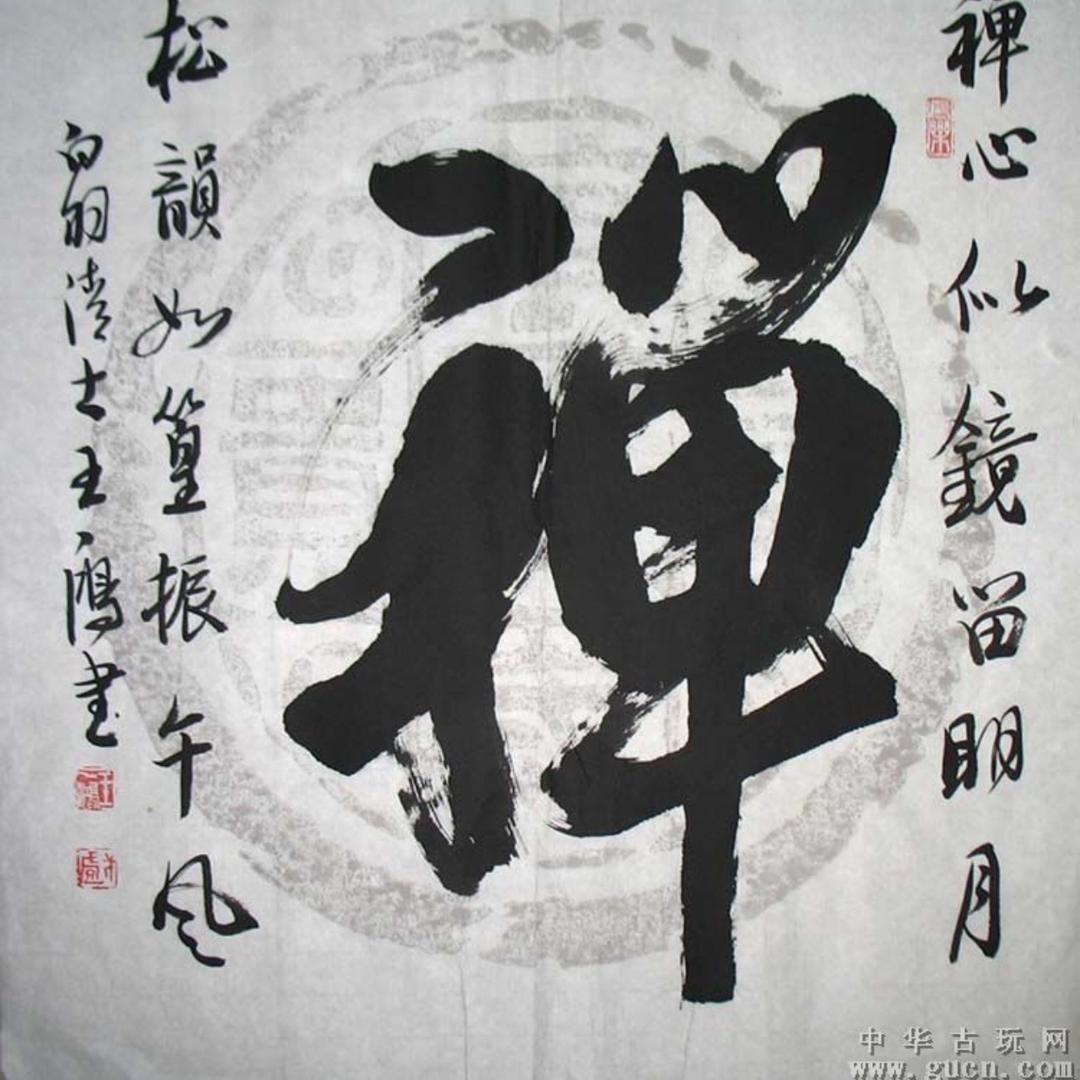 禅心似鏡留明月
禅
松韻如篁振午风
白羽清士王鴻書
中华古玩网
www.gucn.com